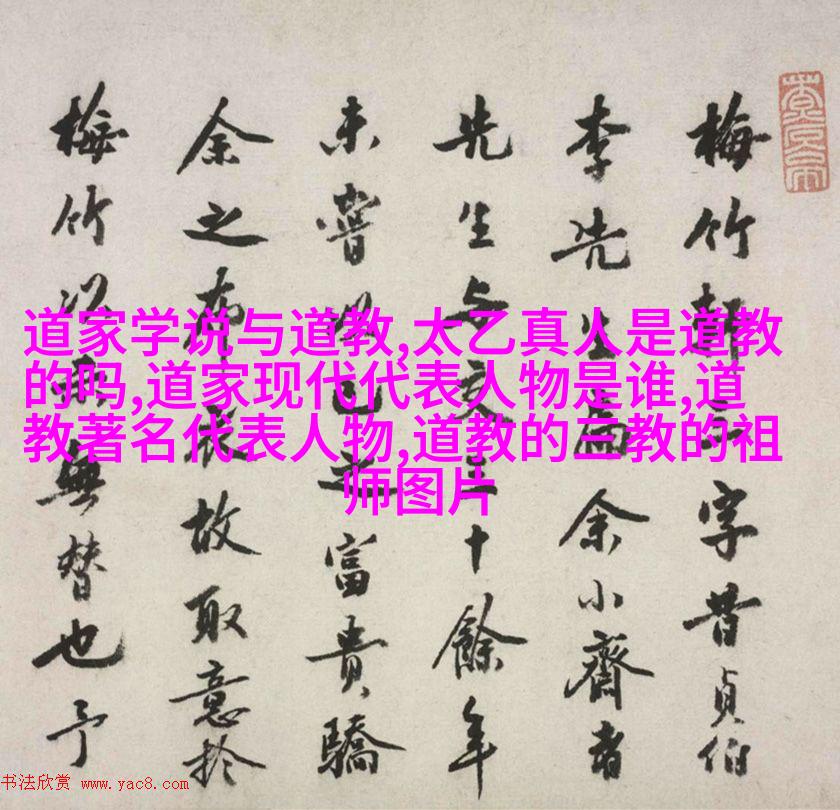 道家学说与道教,太乙真人是道教
的吗,道家现代代表人物是谁,道
教著名代表人物,道教的三教的祖
师图片
梅竹軒字昔貞伯
李先生為余小齋書
先生与交十餘年
未嘗己之富貴驕
余之布故取意於
梅竹無替也予
书法欣赏 www.yac8.com